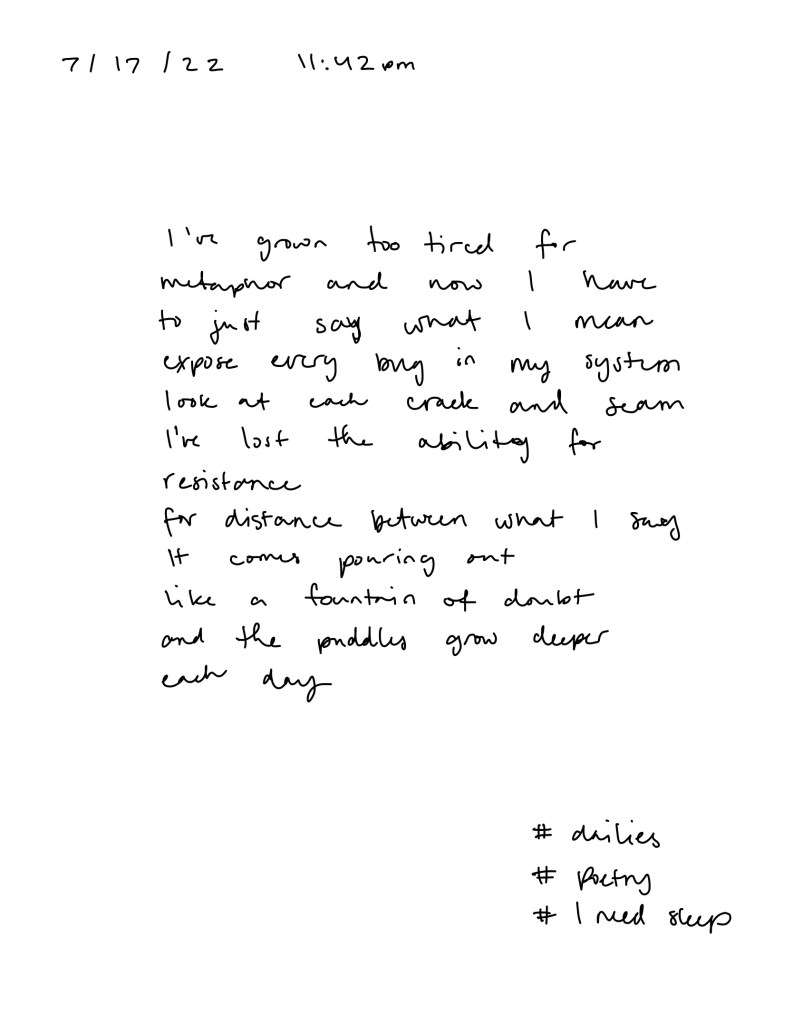 7/17/22 11:42pm
I've grown too tired for
metaphor and now I have
to just say what I mean
expose every bug in my system
look at each crack and seam
I've lost the ability for
resistance
for distance between what I say
It comes pouring out
like a fountain of doubt
and the puddles grow deeper
each day
# dailies
# poetry
# I need sleep